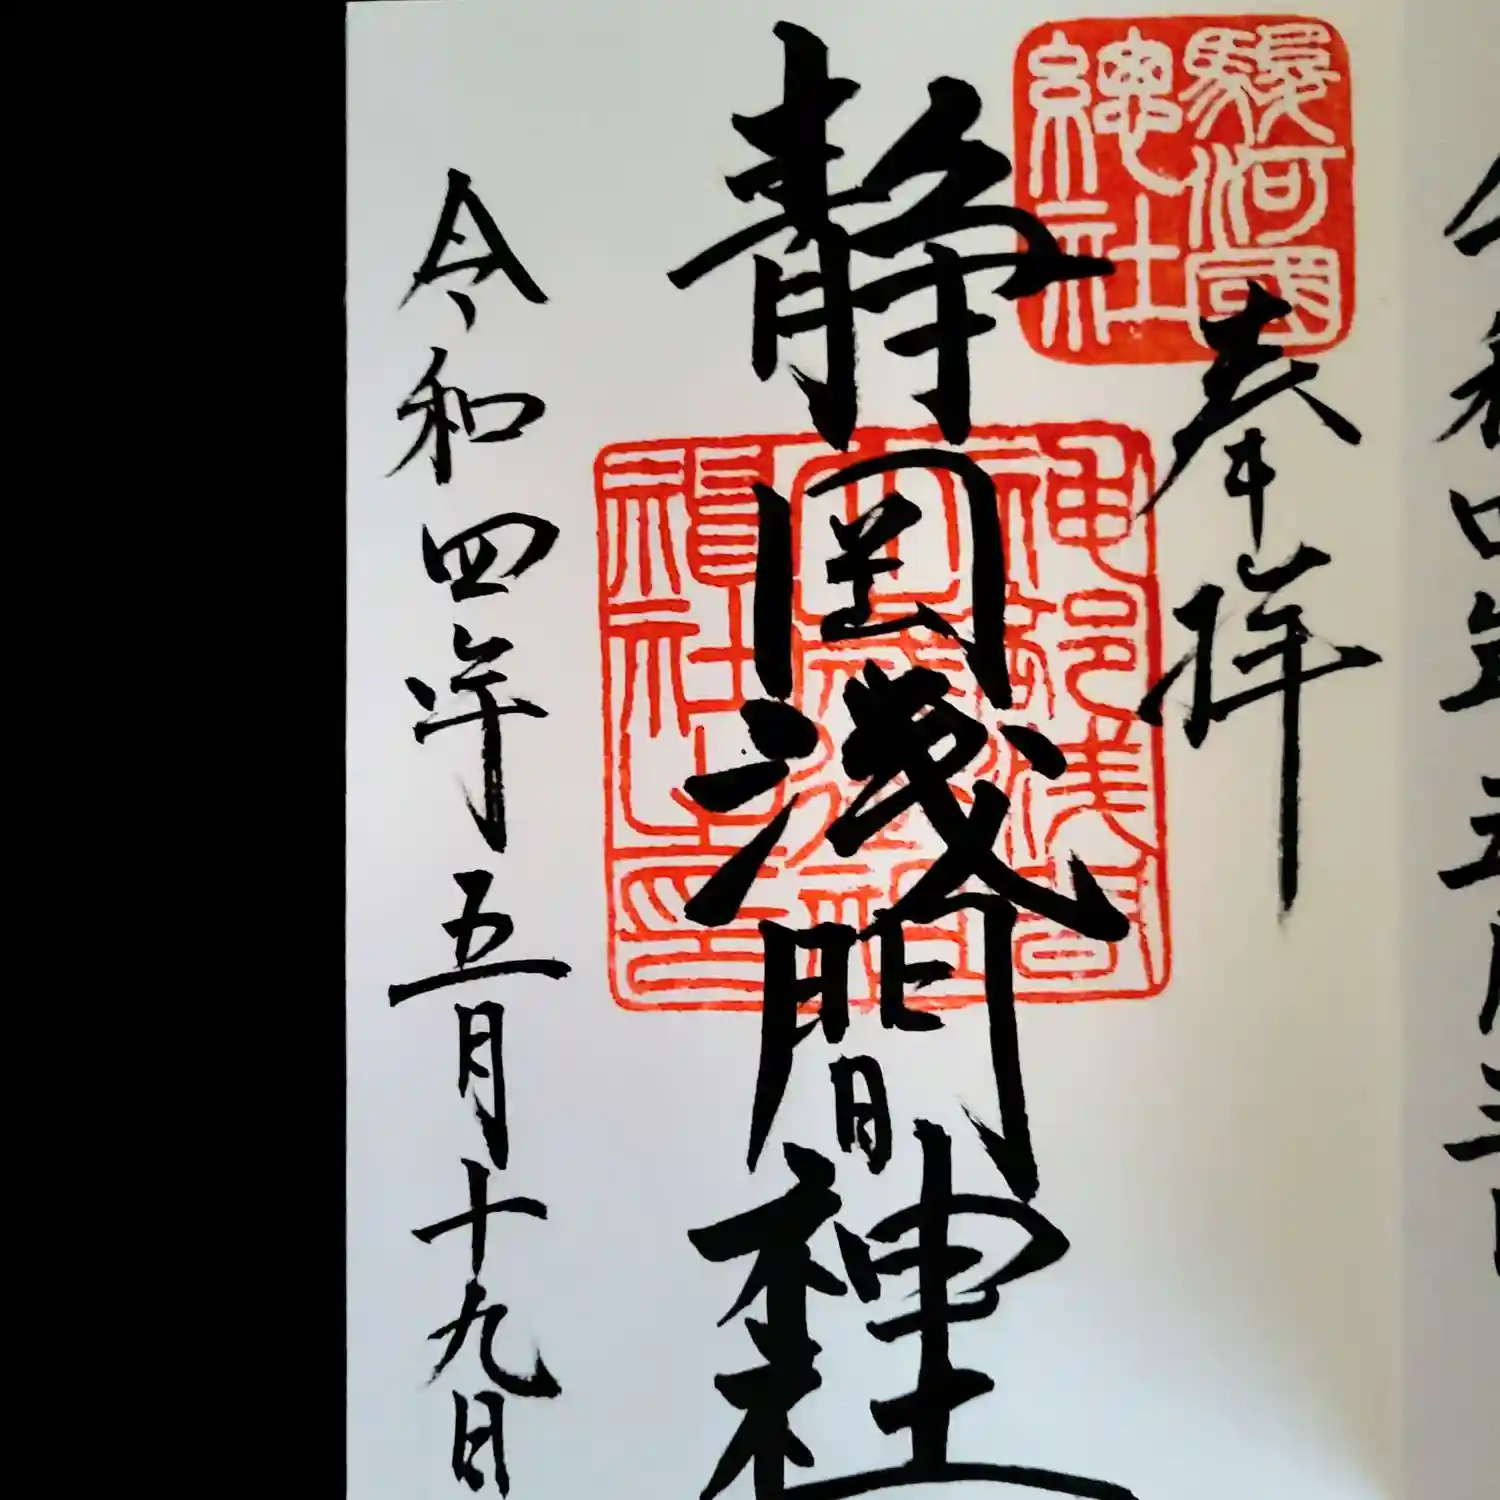 奉拝
駿河國
總社
静岡浅間神社
神部浅間
大歳御祖
神社之印
令和四年五月十九日